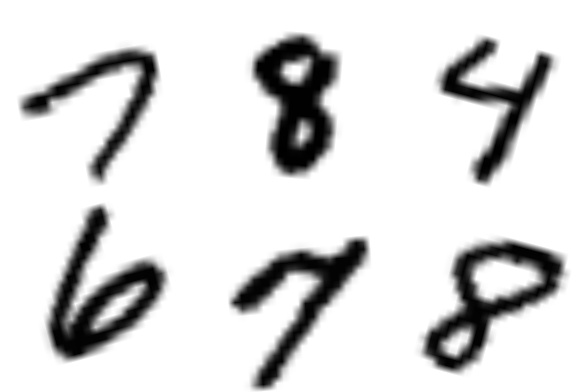 7 8 4
6 7 8